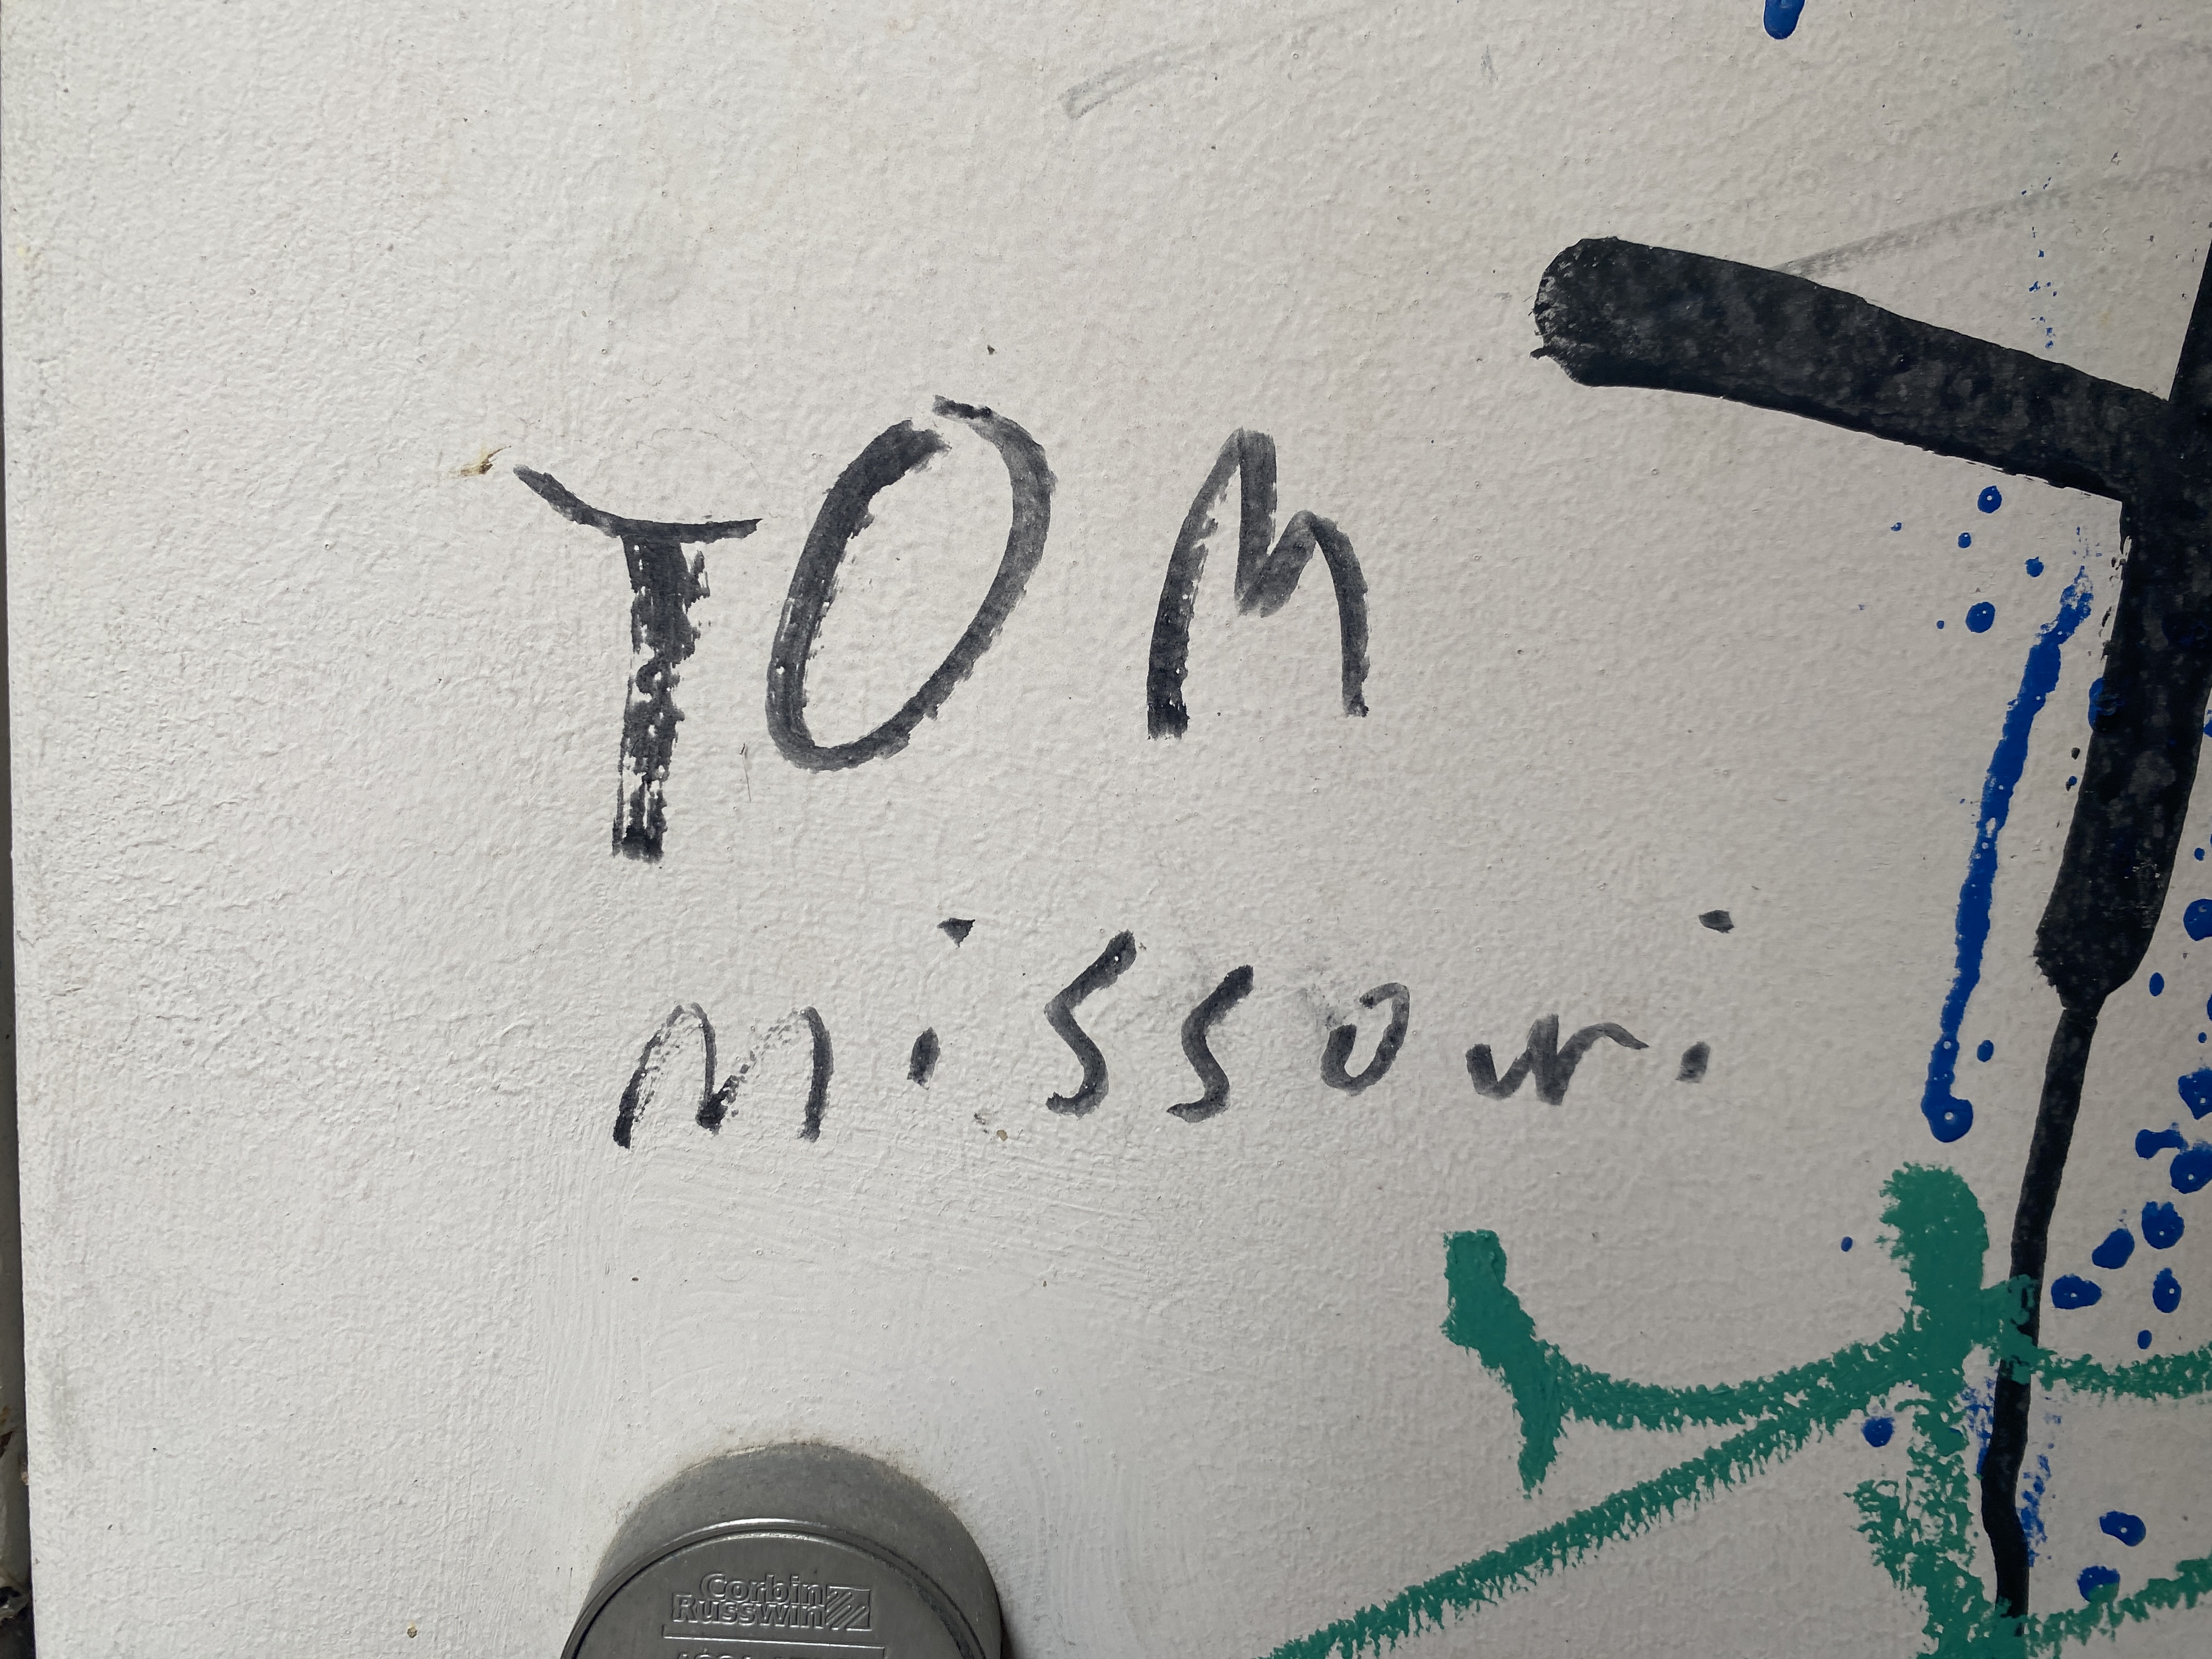 TOM
missouri
Corbin
Russwin